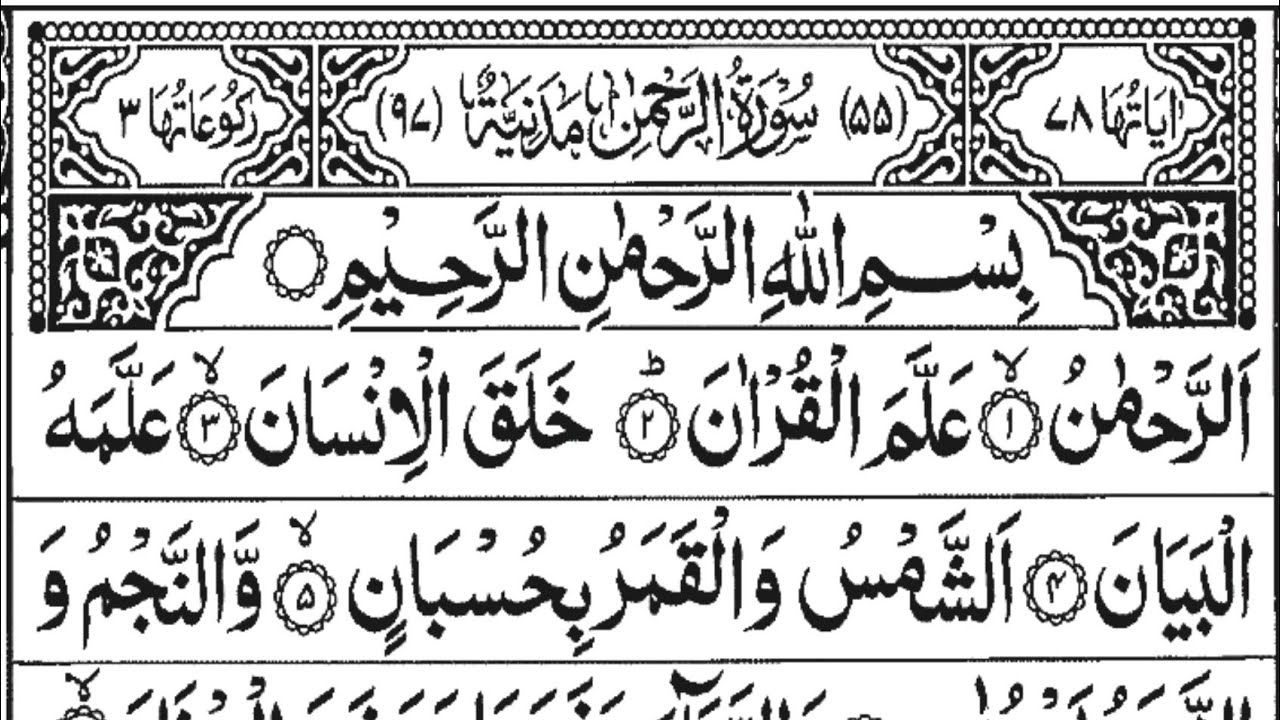 اٰيَاتُهَا ٧٨ (٥٥) سُوْرَةُ الرَّحْمٰنِ مَدَنِيَّةٌ (٩٧) رُكُوْعَاتُهَا ٣
بِسْمِ اللّٰهِ الرَّحْمٰنِ الرَّحِيْمِ
اَلرَّحْمٰنُ ۙ﴿١﴾ عَلَّمَ الْقُرْاٰنَ ؕ﴿٢﴾ خَلَقَ الْاِنْسَانَ ۙ﴿٣﴾ عَلَّمَهُ
الْبَيَانَ ﴿۴﴾ اَلشَّمْسُ وَالْقَمَرُ بِحُسْبَانٍ ۙ﴿۵﴾ وَّالنَّجْمُ وَ